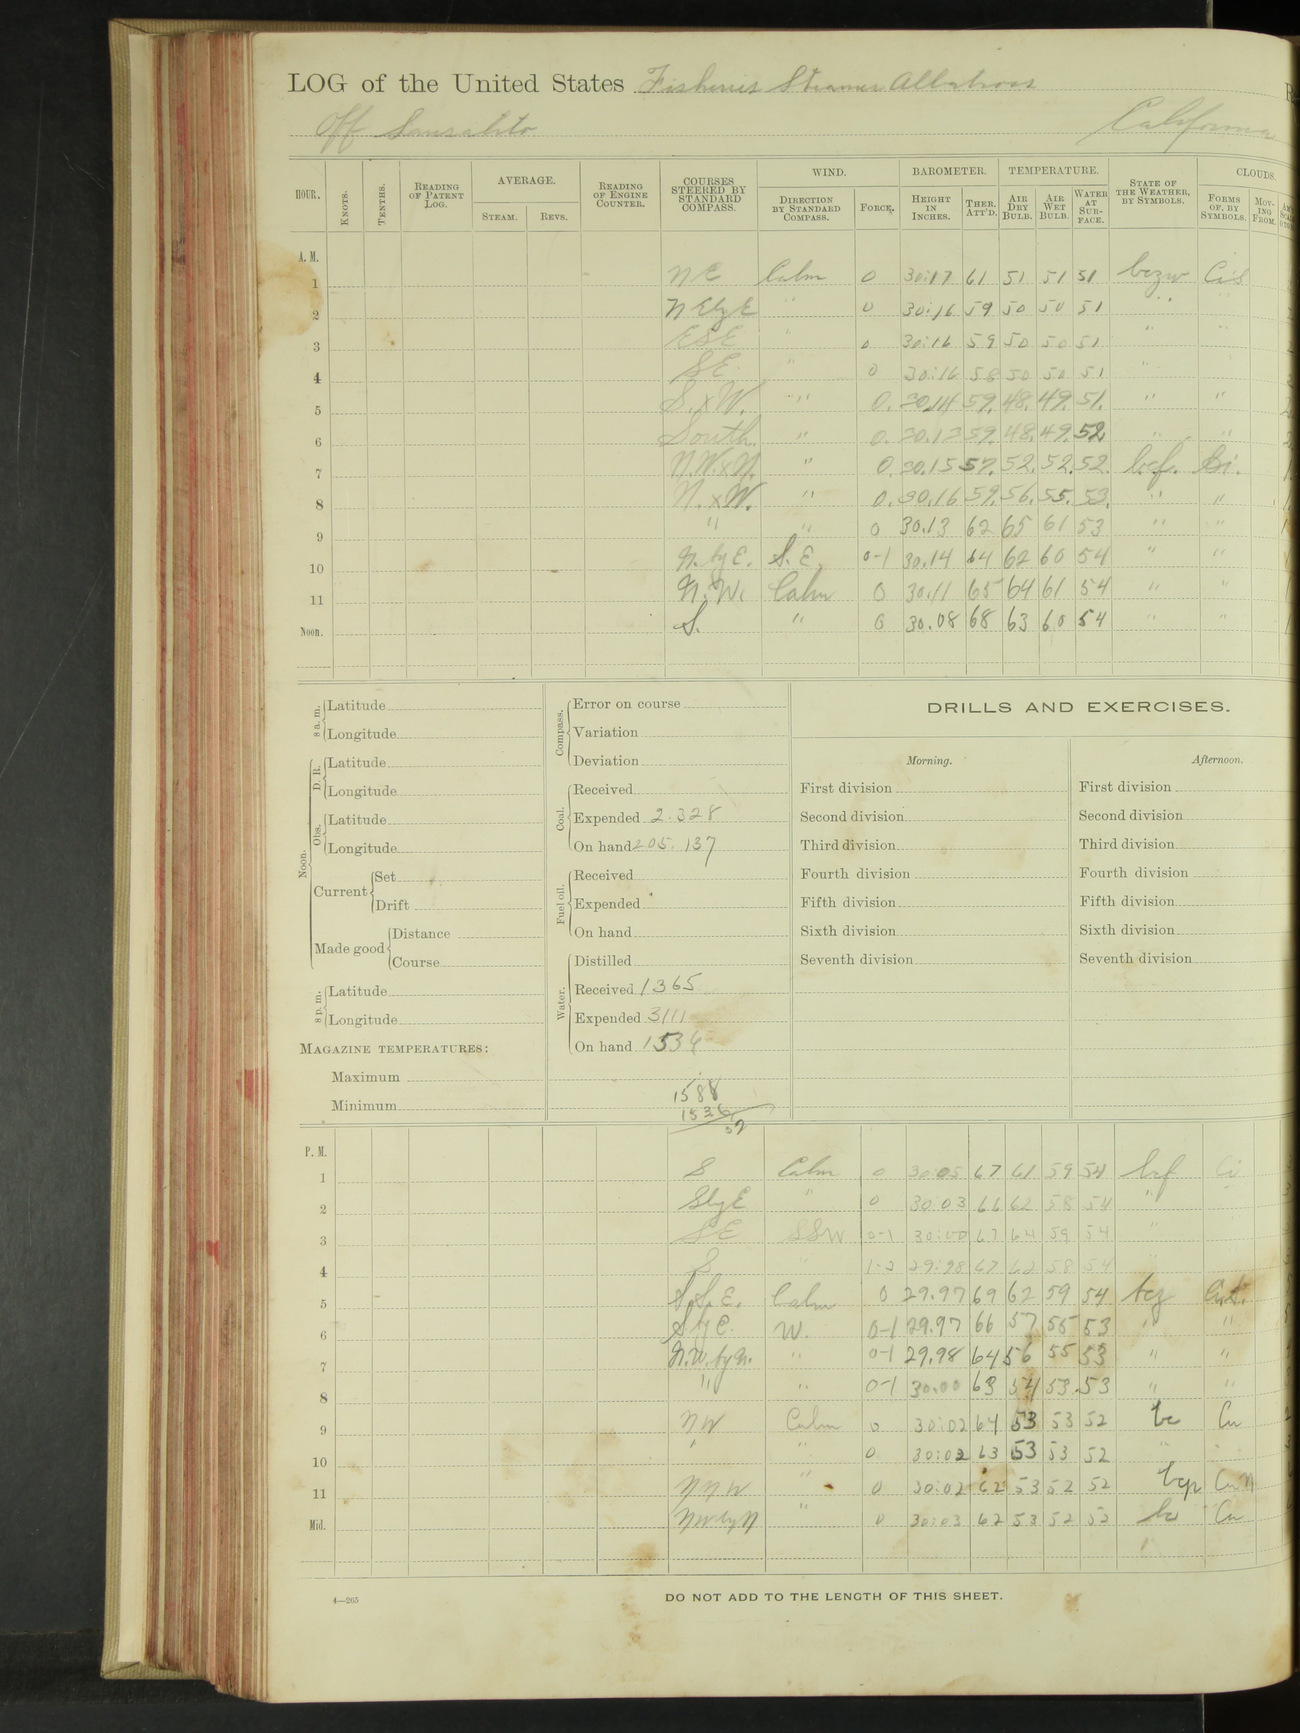 LOG of the United States Fisheries Steamer Albatross
Off Sausalito California
HOUR. KNOTS. TENTHS. READING OF PATENT LOG. AVERAGE. STEAM. REVS. READING OF ENGINE COUNTER. COURSES STEERED BY STANDARD COMPASS. WIND. DIRECTION BY STANDARD COMPASS. FORCE. BAROMETER. HEIGHT IN INCHES. THER. ATT'D. TEMPERATURE. AIR DRY BULB. AIR WET BULB. WATER AT SURFACE. STATE OF THE WEATHER, BY SYMBOLS. CLOUDS. FORMS OF, BY SYMBOLS. MOVING FROM.
A. M.
1 NE Calm 0 30:17 61 51 51 51 bczw CiS
2 NEbyE " 0 30:16 59 50 50 51 " "
3 ESE " 0 30:16 59 50 50 51 " "
4 SE " 0 30:16 58 50 50 51 "
5 S.xW. " 0. 30.14 59. 48. 49. 51. " "
6 South. " 0. 30.13 59. 48. 49. 52. " "
7 N.W.xN. " 0. 30.15 57. 52. 52. 52. bcf. Ci.
8 N.xW. " 0. 30.16 59. 56. 55. 53. " "
9 " " 0 30.13 62 65 61 53 " "
10 N. by E. S. E. 0-1 30.14 64 62 60 54 " "
11 N. W. Calm 0 30.11 65 64 61 54 " "
Noon. S. " 0 30.08 68 63 60 54 " "
8 a. m. Latitude
Longitude
Noon. D. R. Latitude
Longitude
Obs. Latitude
Longitude
Current Set
Drift
Made good Distance
Course
8 p. m. Latitude
Longitude
MAGAZINE TEMPERATURES:
Maximum
Minimum
Compass. Error on course
Variation
Deviation
Coal. Received
Expended 2.328
On hand 205.137
Fuel oil. Received
Expended
On hand
Water. Distilled
Received 1365
Expended 3111
On hand 1536
1588
1536
52
DRILLS AND EXERCISES.
Morning.
First division
Second division
Third division
Fourth division
Fifth division
Sixth division
Seventh division
Afternoon.
First division
Second division
Third division
Fourth division
Fifth division
Sixth division
Seventh division
P. M.
1 S Calm 0 30:05 67 61 59 54 bcf Ci
2 SbyE " 0 30:03 66 62 58 54 "
3 SE SSW 0-1 30:00 67 64 59 54 "
4 S " 1-2 29:98 67 62 58 54 "
5 S.S.E. Calm 0 29.97 69 62 59 54 bcz
6 S by E. W. 0-1 29.97 66 57 55 53 " "
7 N.W. by N. " 0-1 29.98 64 56 55 53 " "
8 " " 0-1 30.00 63 54 53 53 " "
9 NW Calm 0 30:02 64 53 53 52 bc Cu
10 " " 0 30:02 63 53 53 52 "
11 NNW " 0 30:02 62 53 52 52 bcp CuN
Mid. NWbyN " 0 30:03 62 53 52 52 bc Cu
4—265
DO NOT ADD TO THE LENGTH OF THIS SHEET.